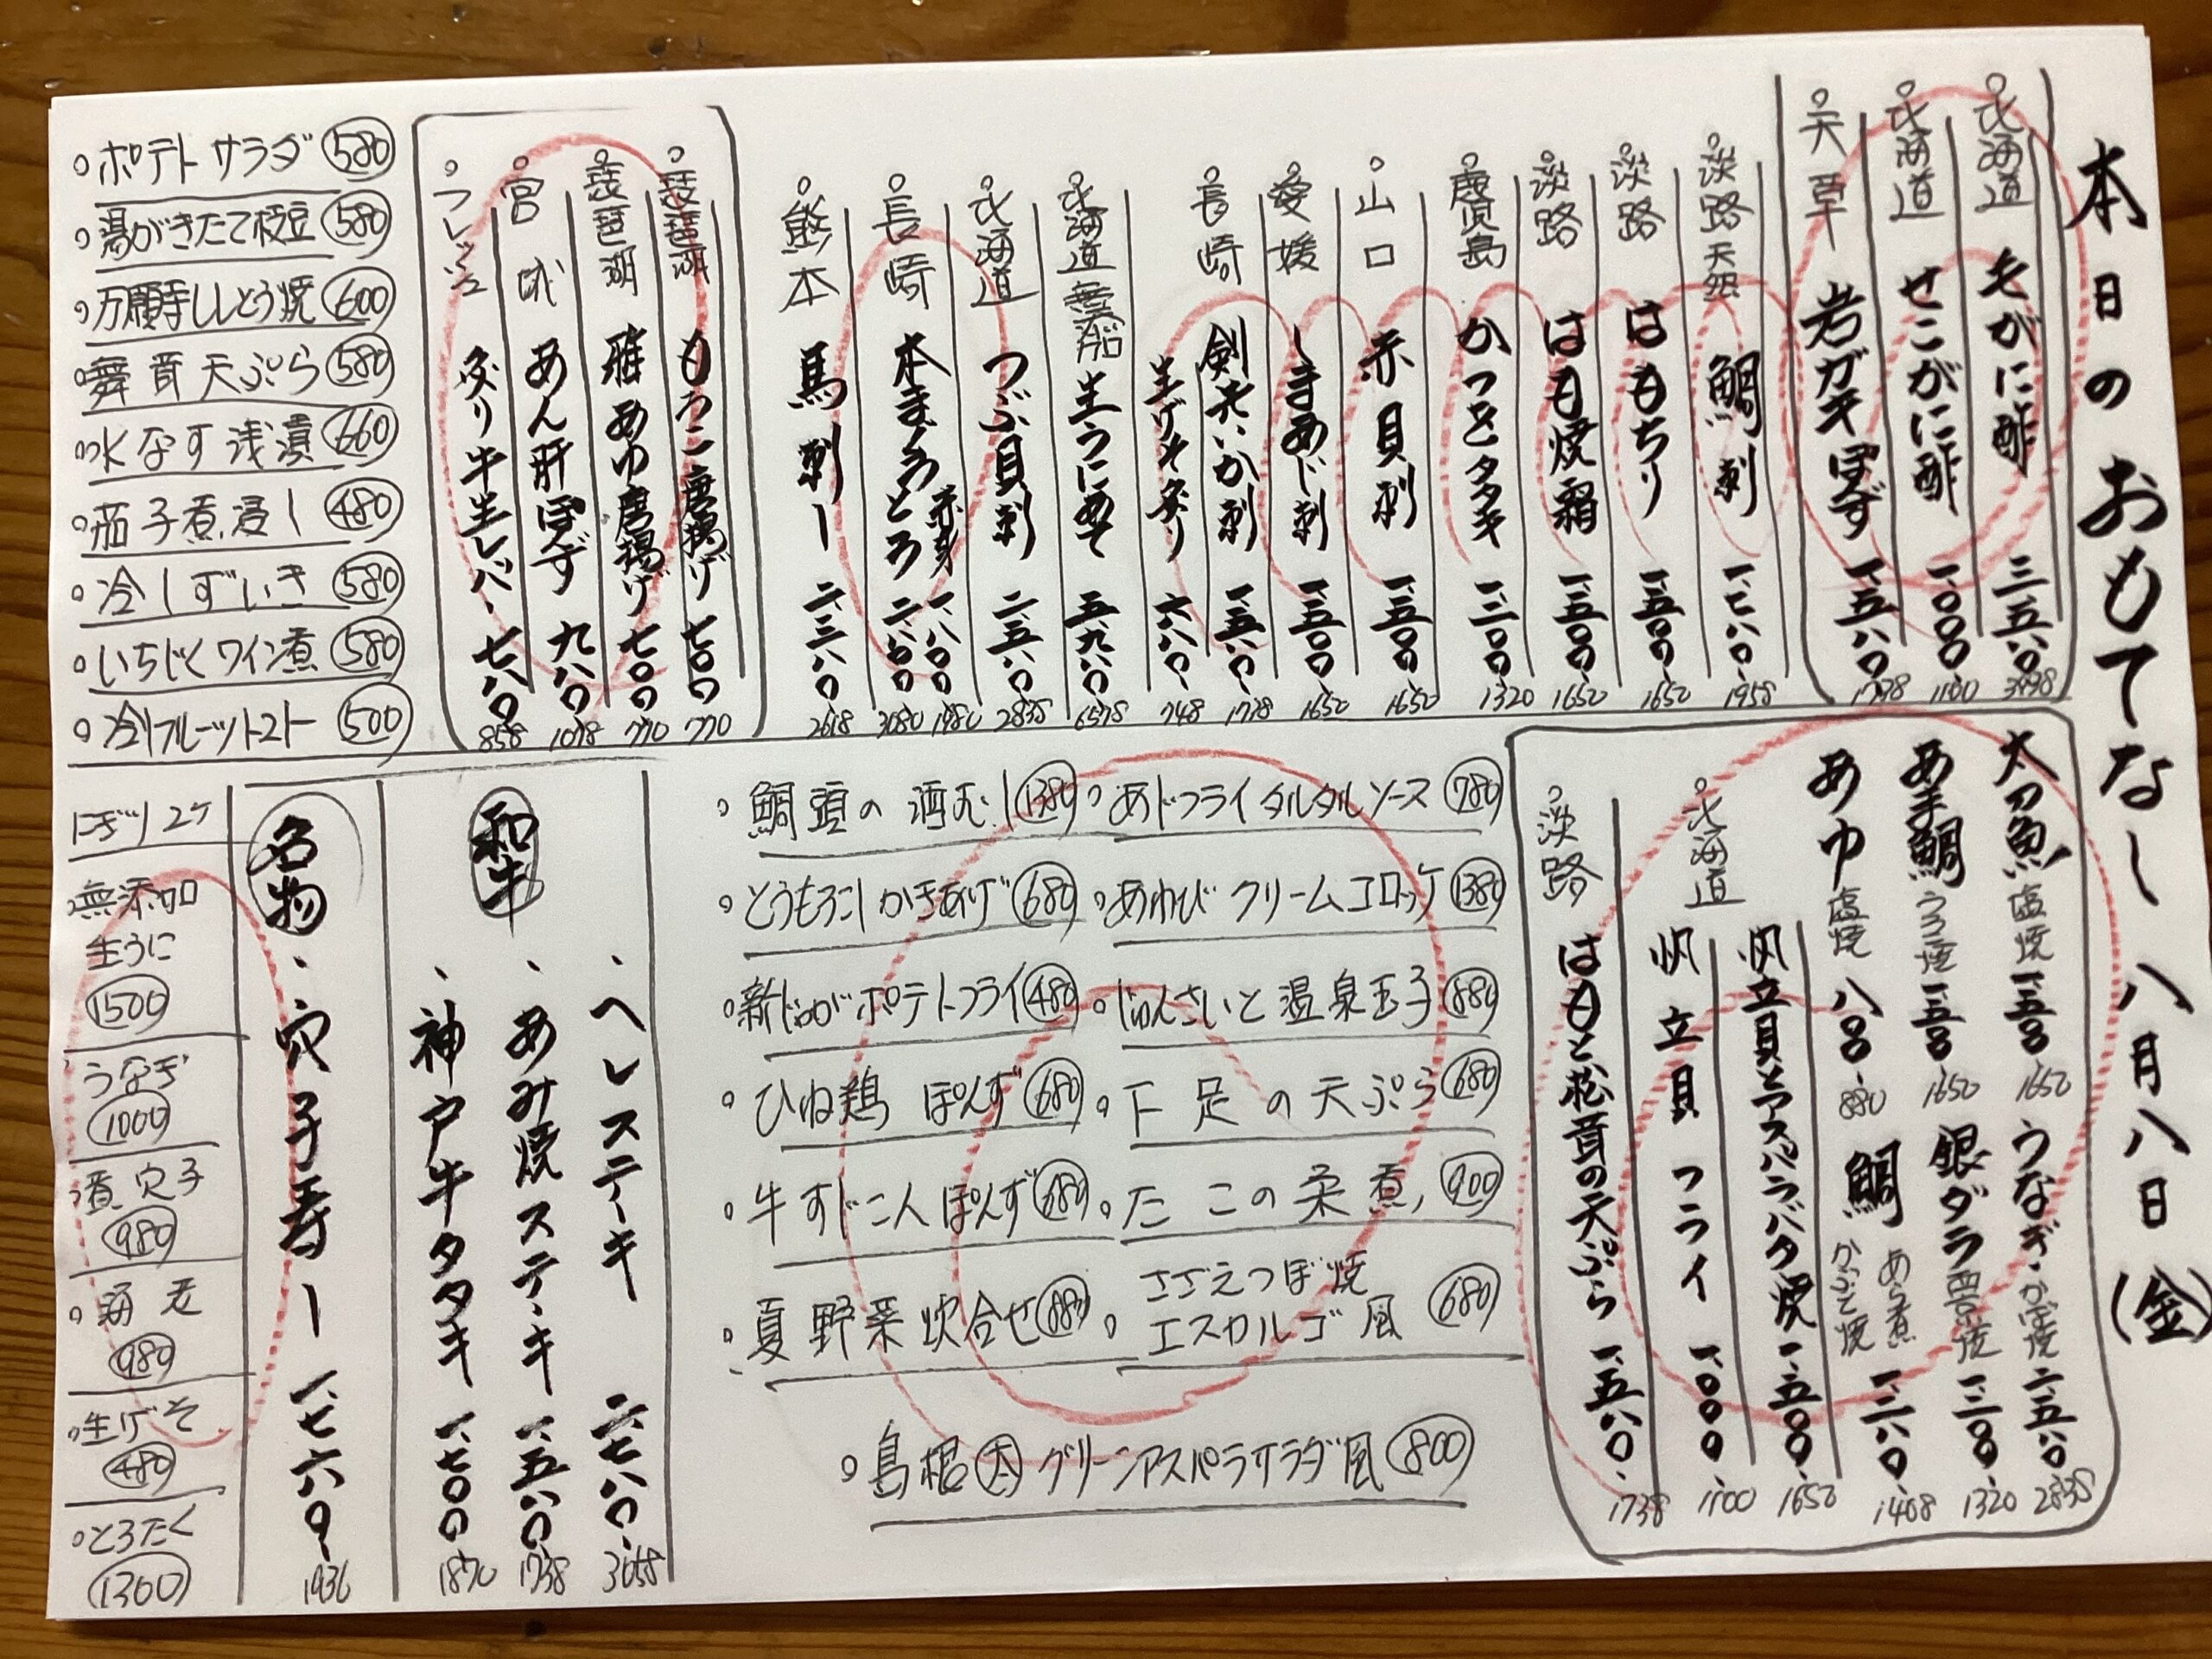 本日のおもてなし 八月八日(金)
北海道 毛がに酢 三、五八〇 3938
北海道 せこがに酢 一、〇〇〇 1100
天草 岩ガキぽんず 一、五八〇 1738
淡路 天然 鯛刺 一、七八〇 1958
淡路 はもちり 一、五〇〇 1650
淡路 はも焼霜 一、五〇〇 1650
鹿児島 かつをタタキ 一、二〇〇 1320
山口 赤貝刺 一、五〇〇 1650
愛媛 しまあじ刺 一、五〇〇 1650
長崎 剣先いか刺 一、五八〇 1738
生げそ炙り 六八〇 748
北海道 無添加 生うにあて 五、九八〇 6578
北海道 つぶ貝刺 二、五八〇 2838
長崎 本まぐろ 赤身 一、八〇〇 1980
とろ 二、八〇〇 3080
熊本 馬刺し 二、三八〇 2618
琵琶湖 もろこ唐揚げ 七〇〇 770
琵琶湖 稚あゆ唐揚げ 七〇〇 770
宮城 あん肝ぽんず 九八〇 1078
フレッシュ 炙り牛生レバー 七八〇 858
ポテトサラダ 580
湯がきたて枝豆 580
万願寺ししとう焼 600
舞茸天ぷら 580
水なす浅漬 660
茄子煮浸し 480
冷しずいき 580
いちじくワイン煮 580
冷しフルーツトマト 500
太刀魚 塩焼 一、五〇〇 1650
うなぎ かば焼 二、五八〇 2838
あま鯛 うろこ焼 一、五〇〇 1650
銀ダラ 西京焼 一、二〇〇 1320
あゆ 塩焼 八〇〇 880
鯛 あら煮 かぶと焼 一、二八〇 1408
北海道
帆立貝とアスパラバタ焼 一、五〇〇 1650
帆立貝フライ 一、〇〇〇 1100
淡路 はもと松茸の天ぷら 一、五八〇 1738
あじフライタルタルソース 780
あわびクリームコロッケ 1380
じゅんさいと温泉玉子 880
下足の天ぷら 680
たこの柔煮 900
さざえつぼ焼
エスカルゴ風 680
鯛頭の酒むし 1380
とうもろこしかきあげ 680
新じゃがポテトフライ 480
ひね鶏ぽんず 680
牛すじこんぽんず 680
夏野菜炊合せ 880
島根 太 グリーンアスパラサラダ風 800
和牛
、ヘレステーキ 二、七八〇 3058
、あみ焼ステーキ 一、五八〇 1738
、神戸牛タタキ 一、七〇〇 1870
名物
、穴子寿し 一、七六〇 1936
にぎり2ケ
無添加
生うに
1500
うなぎ
1000
煮穴子
980
海老
980
生げそ
480
とろたく
1300